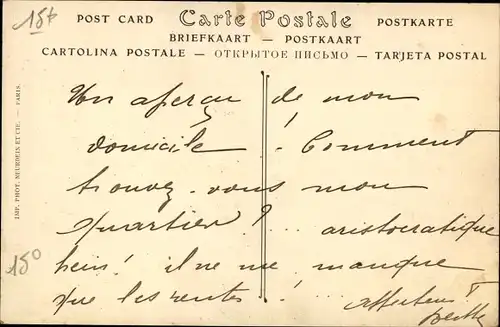 15f
POST CARD Carte Postale POSTKARTE
BRIEFKAART — POSTKAART
CARTOLINA POSTALE — ОТКРЫТОЕ ПИСЬМО — TARJETA POSTAL
IMP. PHOT. NEURDEIN ET CIE. — PARIS.
Un aperçu de mon
domicile! Comment
trouvez-vous mon
quartier? ... aristocratique
hein! il ne me manque
que les rentes!
150